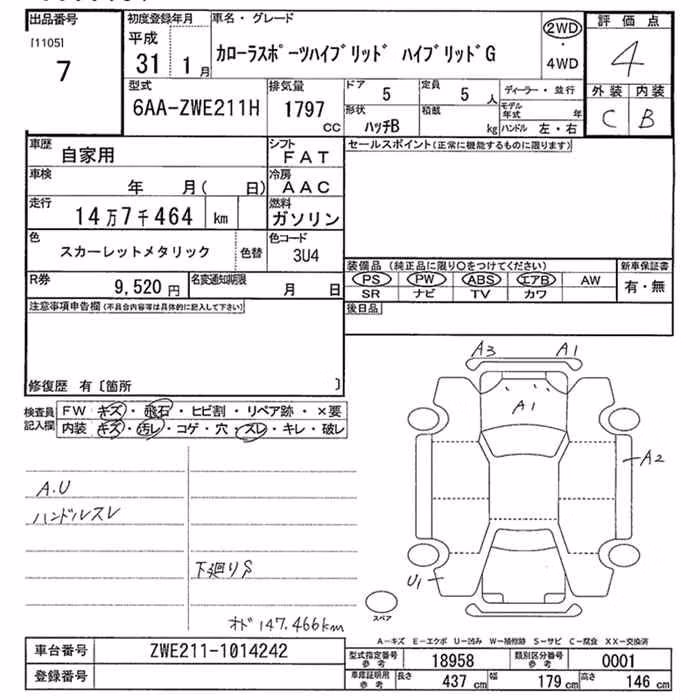 出品番号
[1105]
7
初度登録年月
平成
31 1月
車名・グレード
カローラスポーツハイブリッド ハイブリッドG
2WD
・
4WD
評価点
4
外装 内装
C B
型式
6AA-ZWE211H
排気量
1797
cc
ドア
5
定員
5 人
形状
ハッチB
積載
kg
ディーラー・並行
モデル年式 年
ハンドル 左・右
車歴
自家用
シフト
FAT
車検
年 月( 日)
冷房
AAC
走行
14万7千464 km
燃料
ガソリン
色
スカーレットメタリック
色替
色コード
3U4
R券
9,520円
名変通知期限
月 日
セールスポイント(正常に機能するものに限ります)
装備品 (純正品に限り○をつけてください)
新車保証書
PS PW ABS エアB AW
有・無
SR ナビ TV カワ
後日品
注意事項申告欄(不具合内容等は具体的に記入して下さい)
修復歴 有〔箇所 〕
検査員記入欄
FW キズ・飛石・ヒビ割・リペア跡・×要
内装 キズ・汚レ・コゲ・穴・スレ・キレ・破レ
A.U
ハンドルスレ
下廻りS
オド147.466km
A3 A1
A1
A2
U1
スペア
A-キズ E-エクボ U-凹み W-補修跡 S-サビ C-腐食 XX-交換済
車台番号
ZWE211-1014242
登録番号
型式指定番号 参考
18958
類別区分番号 参考
0001
車庫証明用 参考
長さ 437 cm
幅 179 cm
高さ 146 cm